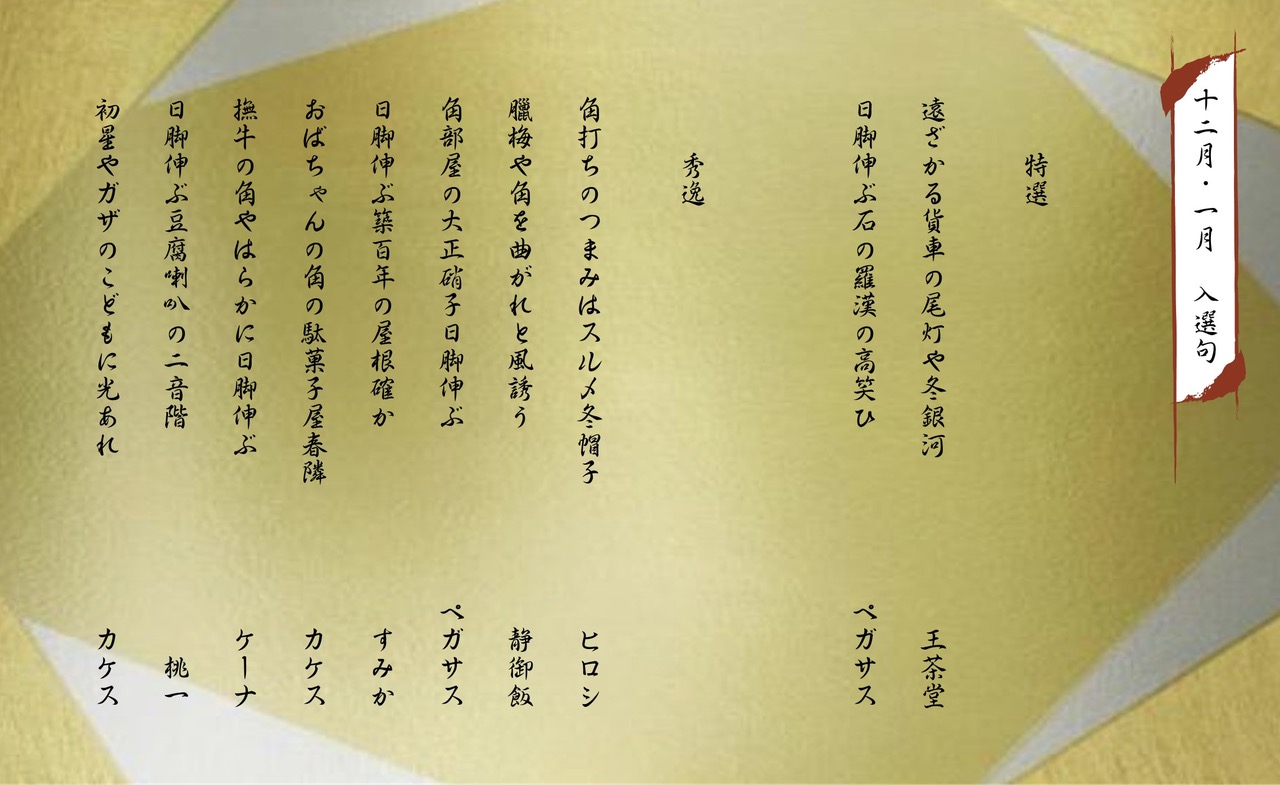 十二月・一月　入選句
特選
遠ざかる貨車の尾灯や冬銀河　王茶堂
日脚伸ぶ石の羅漢の高笑ひ　ペガサス
秀逸
角打ちのつまみはスルメ冬帽子　ヒロシ
臘梅や角を曲がれと風誘う　静御飯
角部屋の大正硝子日脚伸ぶ　ペガサス
日脚伸ぶ築百年の屋根確か　すみか
おばちゃんの角の駄菓子屋春隣　カケス
撫牛の角やはらかに日脚伸ぶ　ケーナ
日脚伸ぶ豆腐喇叭の二音階　桃一
初星やガザのこどもに光あれ　カケス